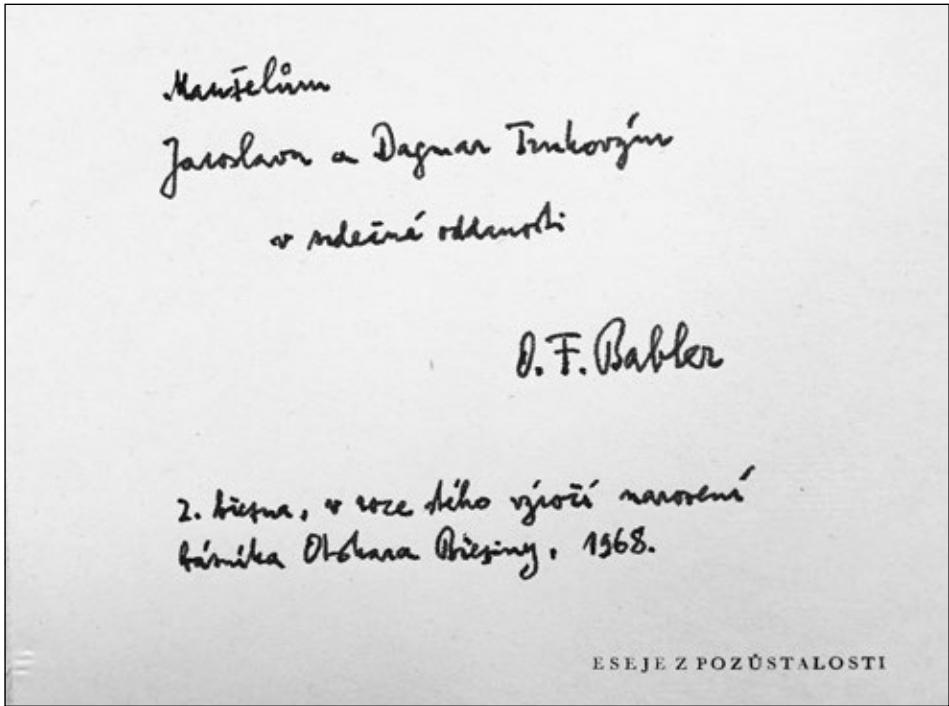 Manželům
Jaroslavu a Dagmar Trnkovým
v srdečné oddanosti
O. F. Babler
2. března, v roce stého výročí narození
básníka Otokara Březiny, 1968.
ESEJE Z POZŮSTALOSTI